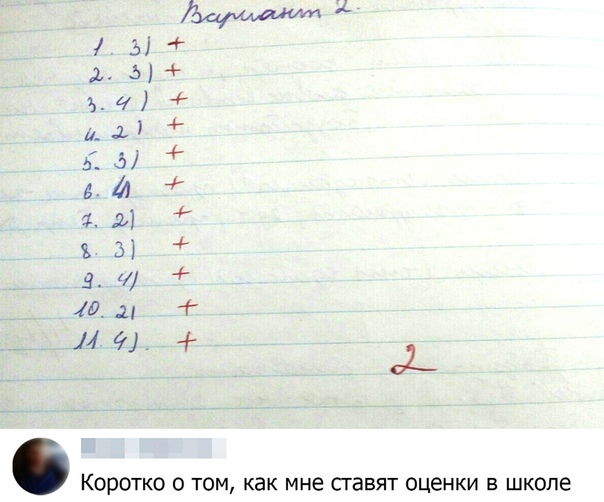 Вариант 2.
1. 3) +
2. 3) +
3. 4) +
4. 2) +
5. 3) +
6. 4) +
7. 2) +
8. 3) +
9. 4) +
10. 2) +
11. 4). +
2
Коротко о том, как мне ставят оценки в школе